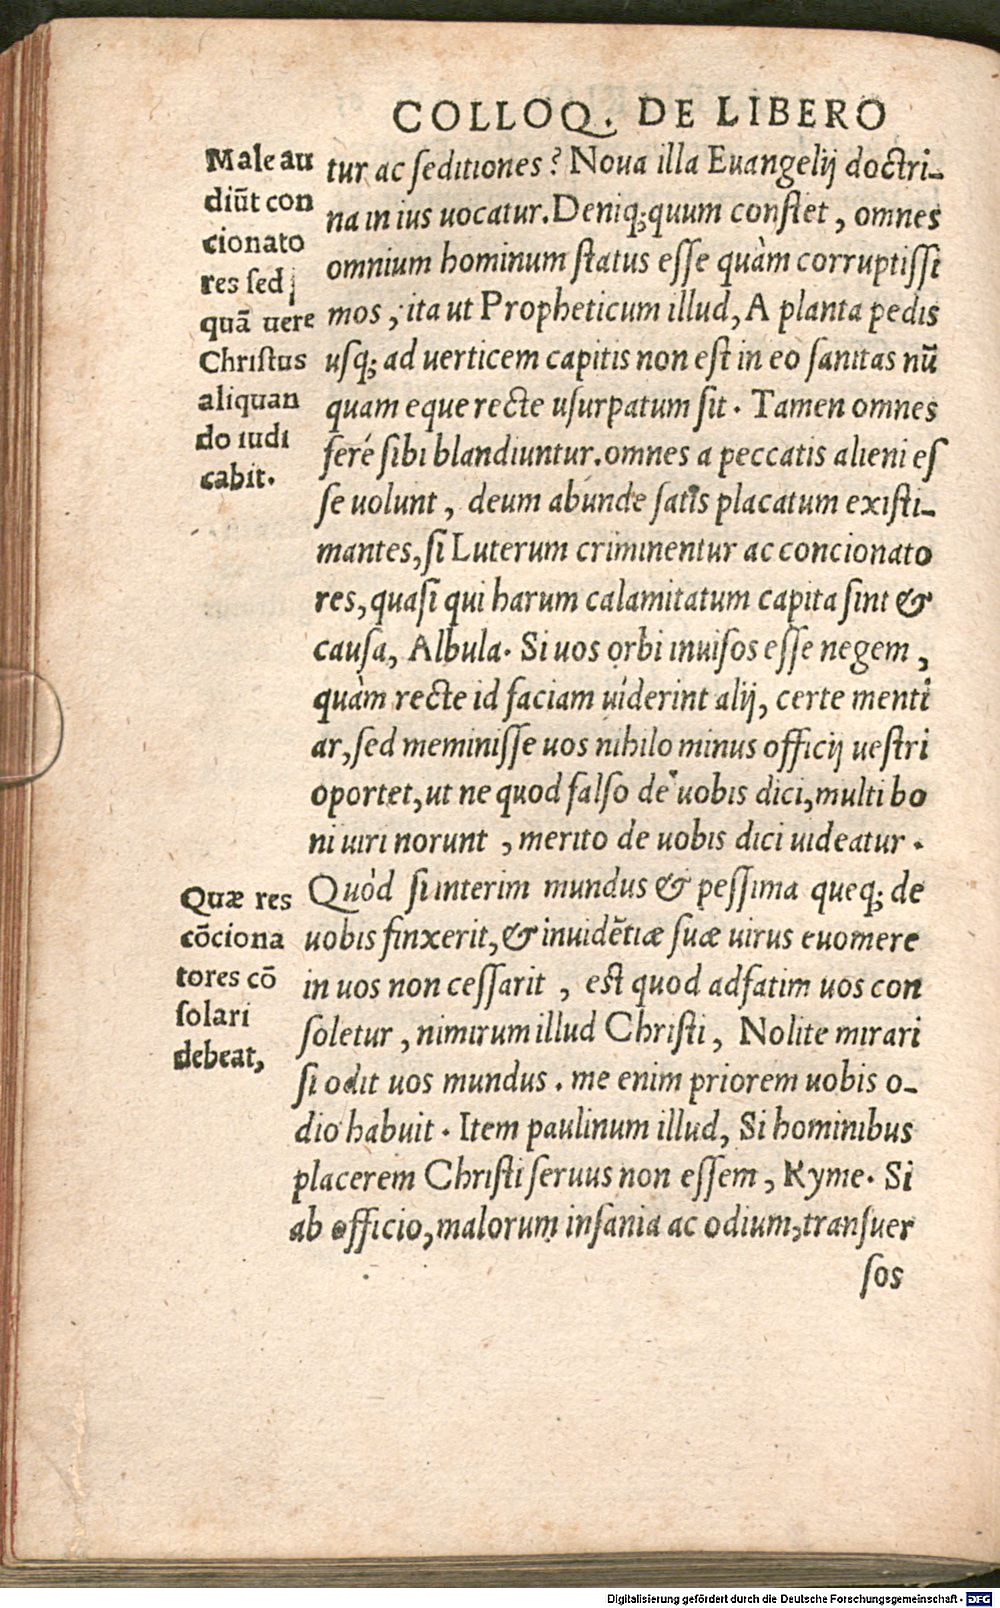 COLLOQ. DE LIBERO
Male au
diūt con
cionato
res sed
quā uere
Christus
aliquan
do iudi
cabit.
tur ac seditiones? Noua illa Euangelij doctri-
na in ius uocatur. Deniq; quum constet, omnes
omnium hominum status esse quàm corruptissi
mos, ita ut Propheticum illud, A planta pedis
usq; ad uerticem capitis non est in eo sanitas nū
quam eque recte usurpatum sit. Tamen omnes
feré sibi blandiuntur. omnes a peccatis alieni es
se uolunt, deum abunde satis placatum existi-
mantes, si Luterum criminentur ac concionato
res, quasi qui harum calamitatum capita sint &
causa, Albula. Si uos orbi inuisos esse negem,
quàm recte id faciam uiderint alij, certe menti
ar, sed meminisse uos nihilo minus officij uestri
oportet, ut ne quod falso de uobis dici, multi bo
ni uiri norunt, merito de uobis dici uideatur.
Quæ res
cōciona
tores cō
solari
debeat,
Quòd si interim mundus & pessima queq; de
uobis finxerit, & inuidētiæ suæ uirus euomere
in uos non cessarit, est quod adfatim uos con
soletur, nimirum illud Christi, Nolite mirari
si odit uos mundus. me enim priorem uobis o-
dio habuit. Item paulinum illud, Si hominibus
placerem Christi seruus non essem, Kyme. Si
ab officio, malorum insania ac odium, transuer
sos
Digitalisierung gefördert durch die Deutsche Forschungsgemeinschaft - DFG